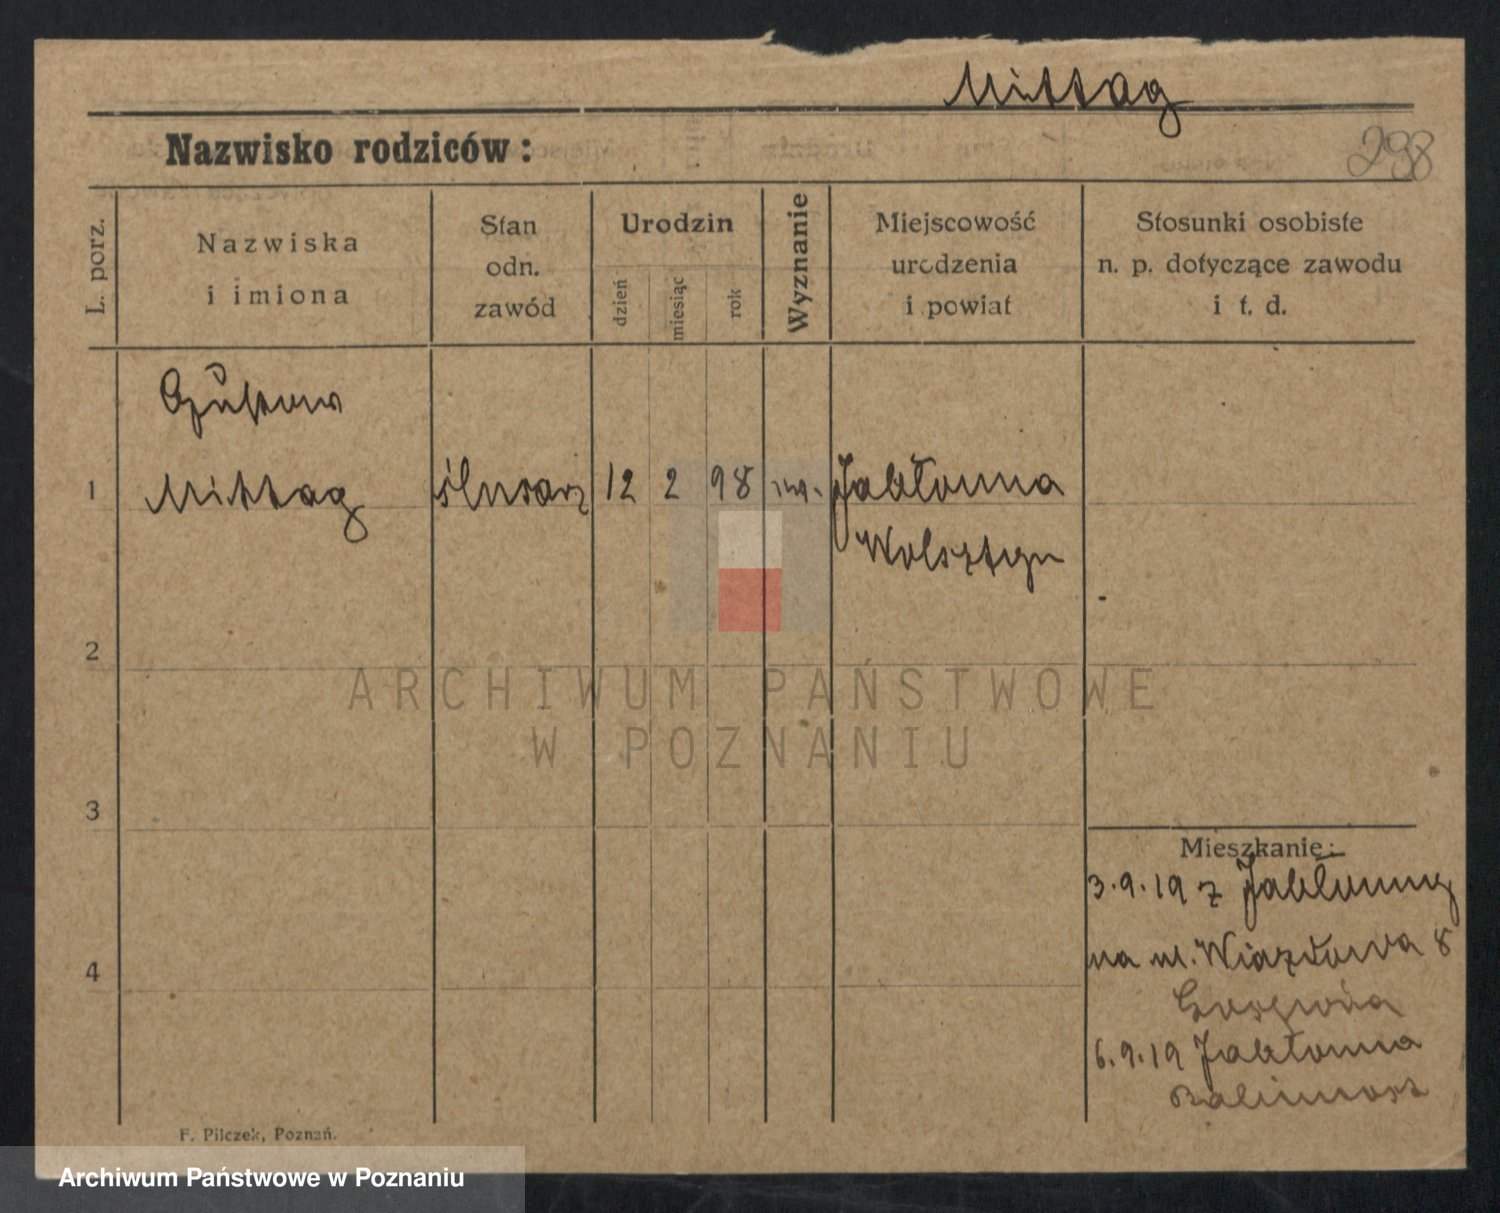 Mittag
Nazwisko rodziców:
298
L. porz.
Nazwiska
i imiona
Stan
odn.
zawód
Urodzin
dzień
miesiąc
rok
Wyznanie
Miejscowość
urodzenia
i powiat
Stosunki osobiste
n. p. dotyczące zawodu
i t. d.
Gustaw
1 Mittag ślusarz 12 2 98 Jabłonna
Wolsztyn
2
ARCHIWUM PAŃSTWOWE
W POZNANIU
3
Mieszkanie:
3.9.19 z Jabłonny
4
na ul. Wiazdowa 8
6.9.19 Jabłonna
F. Pilczek, Poznań.
Archiwum Państwowe w Poznaniu